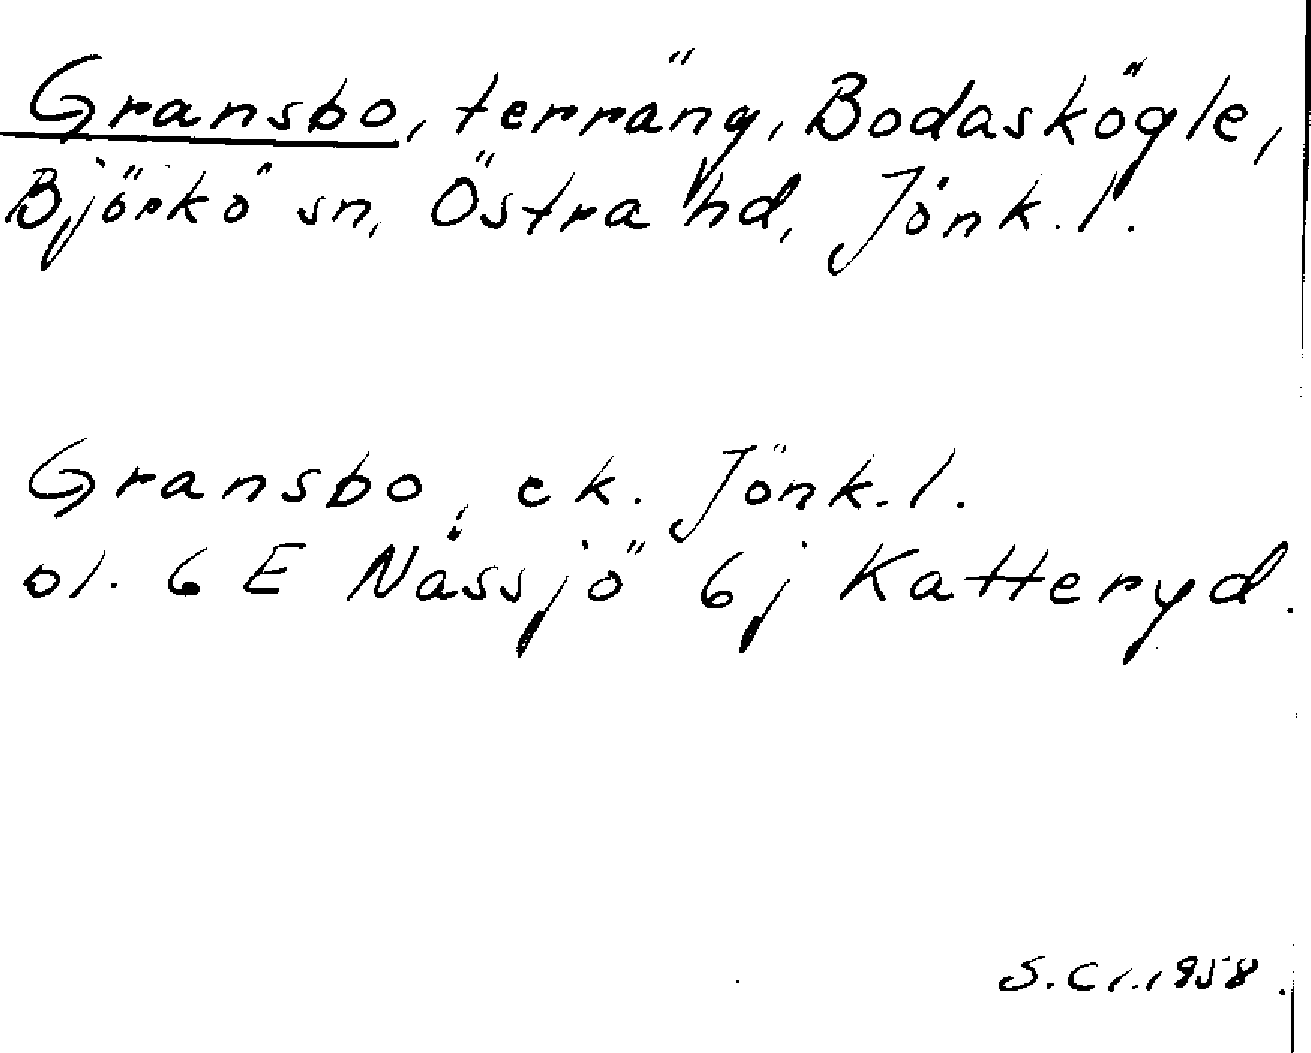 Gransbo, terräng, Bodaskögle,
Björkö sn, Östra hd, Jönk.l.
Gransbo, ek. Jönk.l.
bl. 6 E Nässjö 6j Katteryd.
S.C. 1958.